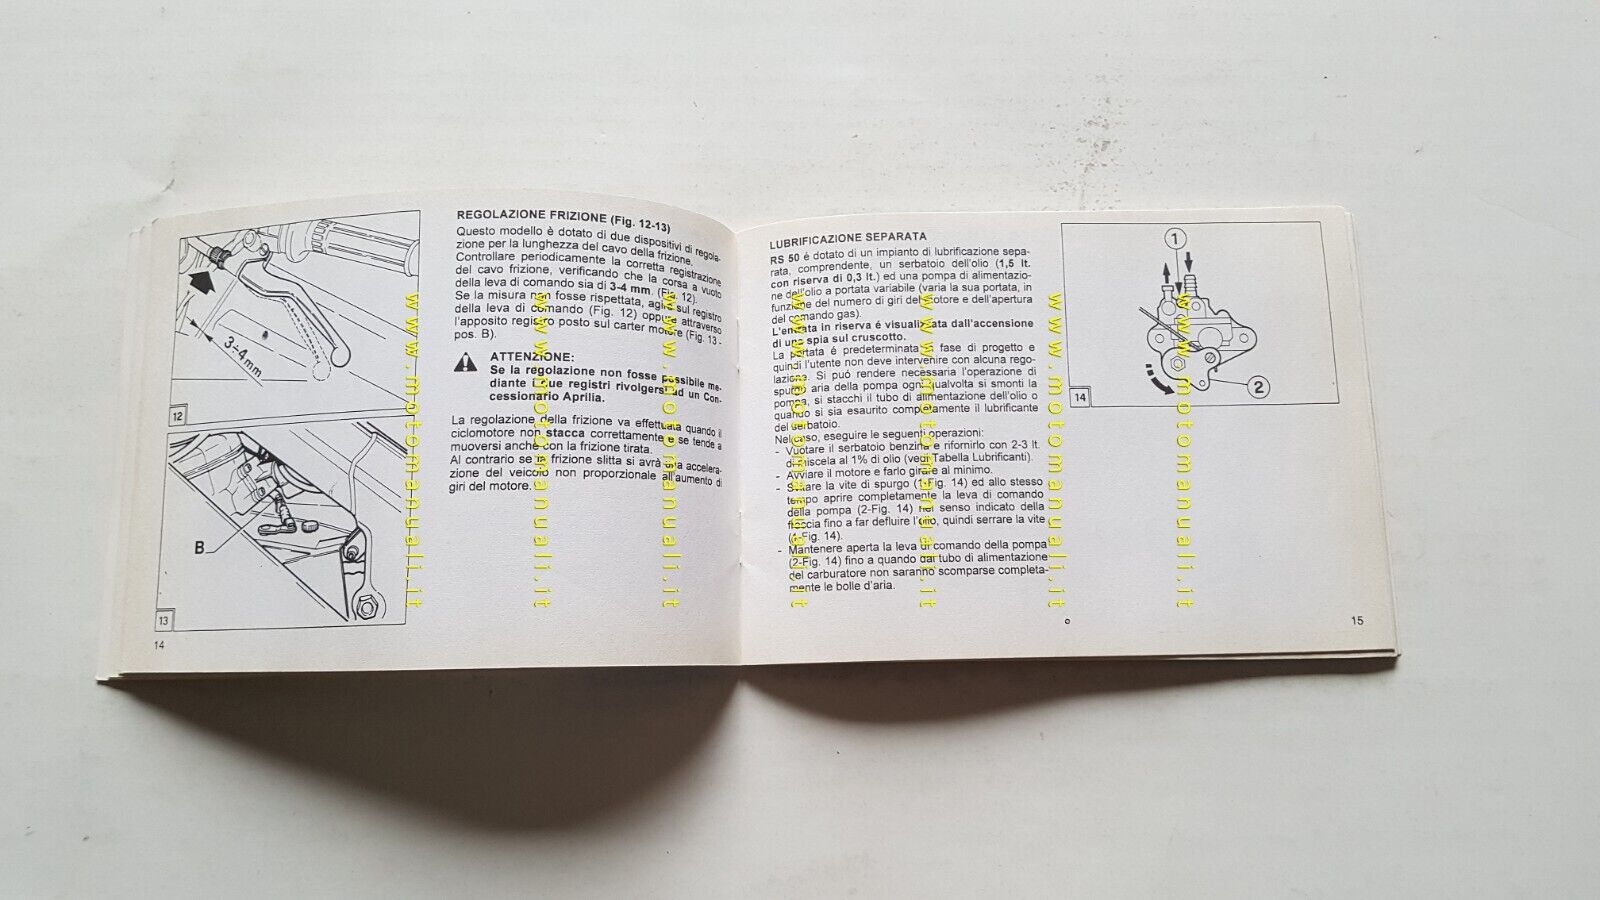 3÷4mm
12
B
13
14
REGOLAZIONE FRIZIONE (Fig. 12-13)
Questo modello è dotato di due dispositivi di regola-
zione per la lunghezza del cavo della frizione.
Controllare periodicamente la corretta registrazione
del cavo frizione, verificando che la corsa a vuoto
della leva di comando sia di 3-4 mm. (Fig. 12).
Se la misura non fosse rispettata, agire sul registro
della leva di comando (Fig. 12) oppure attraverso
l'apposito registro posto sul carter motore (Fig. 13 -
pos. B).
ATTENZIONE:
Se la regolazione non fosse possibile me-
diante i due registri rivolgersi ad un Con-
cessionario Aprilia.
La regolazione della frizione va effettuata quando il
ciclomotore non stacca correttamente e se tende a
muoversi anche con la frizione tirata.
Al contrario se la frizione slitta si avrà una accelera-
zione del veicolo non proporzionale all'aumento di
giri del motore.
LUBRIFICAZIONE SEPARATA
RS 50 é dotato di un impianto di lubrificazione sepa-
rata, comprendente, un serbatoio dell'olio (1,5 lt.
con riserva di 0,3 lt.) ed una pompa di alimentazio-
ne dell'olio a portata variabile (varia la sua portata, in
funzione del numero di giri del motore e dell'apertura
del comando gas).
L'entrata in riserva é visualizzata dall'accensione
di una spia sul cruscotto.
La portata é predeterminata in fase di progetto e
quindi l'utente non deve intervenire con alcuna rego-
lazione. Si puó rendere necessaria l'operazione di
spurgo aria della pompa ogni qualvolta si smonti la
pompa, si stacchi il tubo di alimentazione dell'olio o
quando si sia esaurito completamente il lubrificante
del serbatoio.
Nel caso, eseguire le seguenti operazioni:
- Vuotare il serbatoio benzina e rifornirlo con 2-3 lt.
di miscela al 1% di olio (vedi Tabella Lubrificanti).
- Avviare il motore e farlo girare al minimo.
- Svitare la vite di spurgo (1-Fig. 14) ed allo stesso
tempo aprire completamente la leva di comando
della pompa (2-Fig. 14) nel senso indicato della
freccia fino a far defluire l'olio, quindi serrare la vite
(1-Fig. 14).
- Mantenere aperta la leva di comando della pompa
(2-Fig. 14) fino a quando dal tubo di alimentazione
del carburatore non saranno scomparse completa-
mente le bolle d'aria.
1
2
14
15
www.motomanuali.it
www.motomanuali.it
www.motomanuali.it
www.motomanuali.it
www.motomanuali.it
www.motomanuali.it
www.motomanuali.it